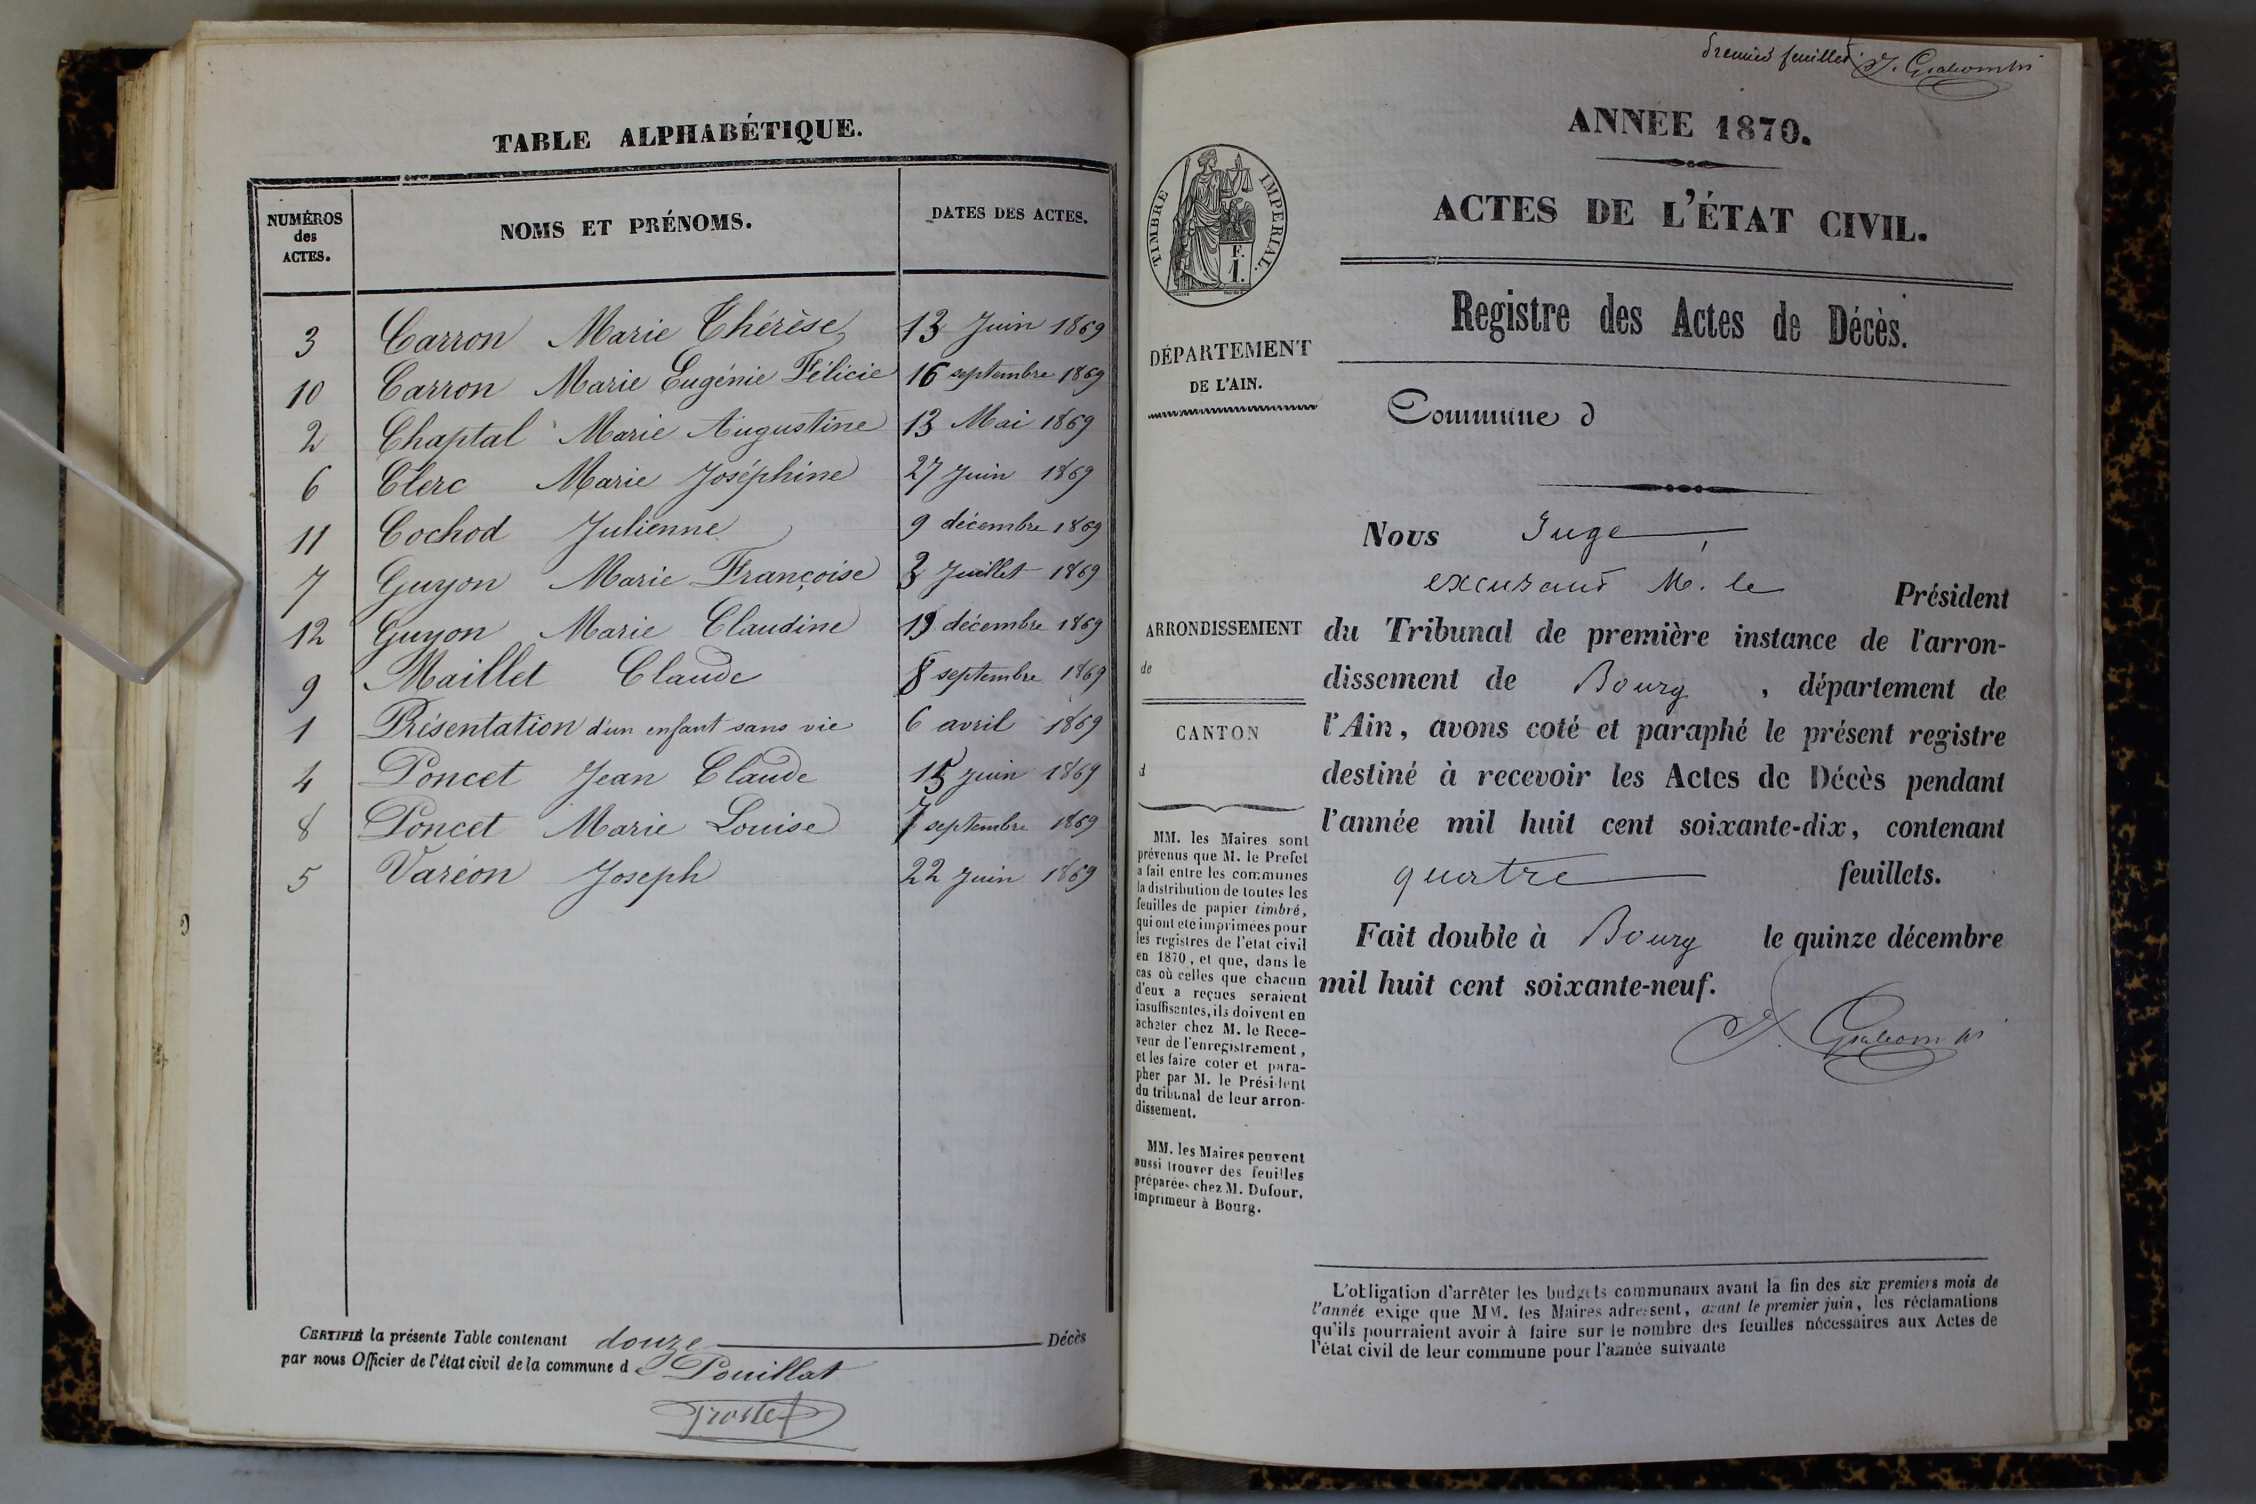 TABLE ALPHABÉTIQUE.
NUMÉROS
des
ACTES.
NOMS ET PRÉNOMS.
DATES DES ACTES.
3 Carron Marie Thérèse 13 Juin 1869
10 Carron Marie Eugénie Félicie 16 septembre 1869
2 Chaptal Marie Augustine 13 Mai 1869
6 Clerc Marie Joséphine 27 Juin 1869
11 Cochod Julienne 9 décembre 1869
7 Guyon Marie Françoise 3 Juillet 1869
12 Guyon Marie Claudine 19 décembre 1869
9 Maillet Claude 8 septembre 1869
1 Présentation d'un enfant sans vie 6 avril 1869
4 Poncet Jean Claude 15 Juin 1869
8 Poncet Marie Louise 7 septembre 1869
5 Varéon Joseph 22 Juin 1869
CERTIFIÉ la présente Table contenant douze Décès
par nous Officier de l'état civil de la commune de Pouillat
premier feuillet
ANNÉE 1870.
ACTES DE L'ÉTAT CIVIL.
Registre des Actes de Décès.
TIMBRE IMPERIAL.
F.
1.
DÉPARTEMENT
DE L'AIN.
Commune d
Nous Juge,
excusant M. le Président
du Tribunal de première instance de l'arron-
dissement de Bourg, département de
l'Ain, avons coté et paraphé le présent registre
destiné à recevoir les Actes de Décès pendant
l'année mil huit cent soixante-dix, contenant
quatre feuillets.
Fait double à Bourg le quinze décembre
mil huit cent soixante-neuf.
ARRONDISSEMENT
de
CANTON
d
MM. les Maires sont
prévenus que M. le Préfet
a fait entre les communes
la distribution de toutes les
feuilles de papier timbré,
qui ont été imprimées pour
les registres de l'état civil
en 1870, et que, dans le
cas où celles que chacun
d'eux a reçues seraient
insuffisantes, ils doivent en
acheter chez M. le Rece-
veur de l'enregistrement,
et les faire coter et para-
pher par M. le Président
du tribunal de leur arron-
dissement.
MM. les Maires peuvent
aussi trouver des feuilles
préparées chez M. Dufour,
imprimeur à Bourg.
L'obligation d'arrêter les budgets communaux avant la fin des six premiers mois de
l'année exige que MM. les Maires adressent, avant le premier juin, les réclamations
qu'ils pourraient avoir à faire sur le nombre des feuilles nécessaires aux Actes de
l'état civil de leur commune pour l'année suivante